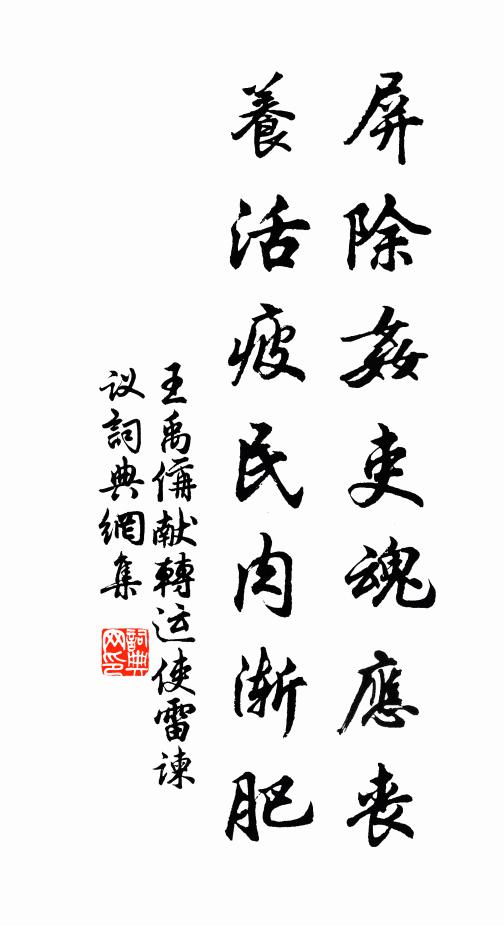 屏除姦吏魂應喪
養活疲民肉漸肥
王禹偁献轉运使雷諫
议詞典網集
詞典
网印